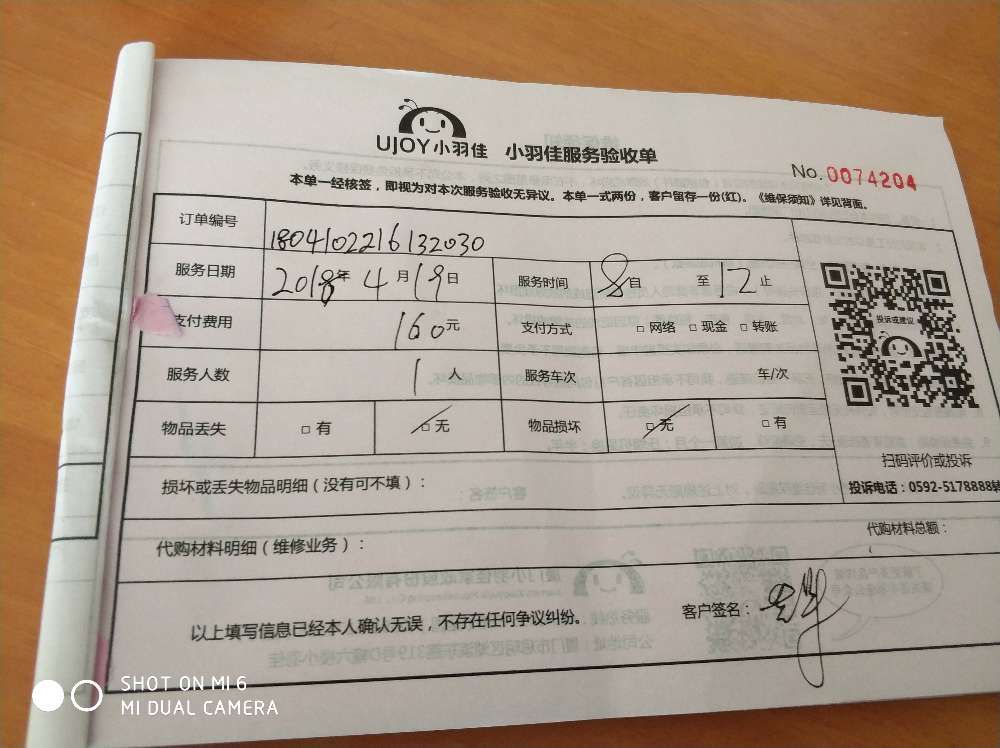 UJOY小羽佳 小羽佳服务验收单
No.0074204
本单一经核签，即视为对本次服务验收无异议。本单一式两份，客户留存一份(红)。《维保须知》详见背面。
订单编号 1804102216132030
服务日期 2018年4月19日 服务时间 8自 至 12止
支付费用 160元 支付方式 □ 网络 □ 现金 □ 转账
投诉或建议
服务人数 1人 服务车次 车/次
物品丢失 □ 有 □ 无 物品损坏 □ 无 □ 有
扫码评价或投诉
损坏或丢失物品明细（没有可不填）：
投诉电话：0592-5178888转
代购材料明细（维修业务）：
代购材料总额：
以上填写信息已经本人确认无误，不存在任何争议纠纷。
客户签名：
SHOT ON MI 6
MI DUAL CAMERA